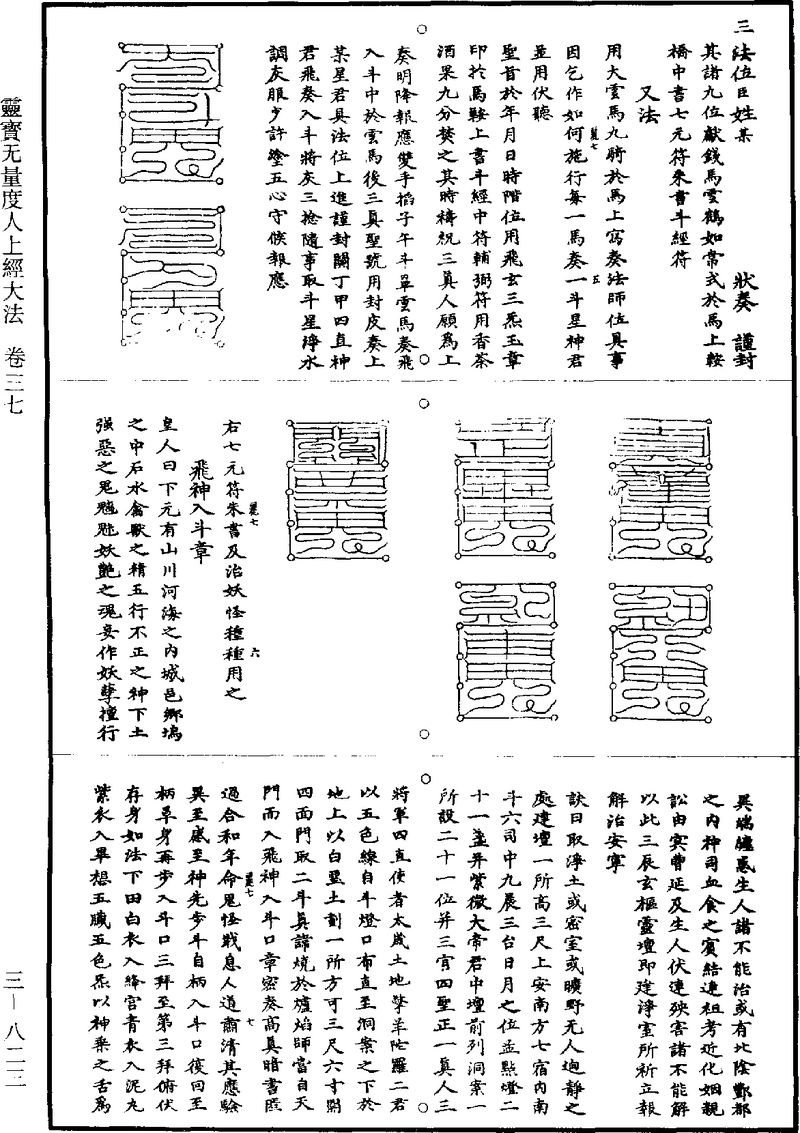 三 法位臣姓某　狀奏　謹封
其諸九位獻錢馬雲鶴如常式於馬上鞍
橋中書七元符朱書斗經符
又法
用大雲馬九騎於馬上寫奏法師位具事
因乞作如何施行每一馬奏一斗星神君
並用伏聽
聖旨於年月日時階位用飛玄三炁玉章
印於馬鞍上書斗經中符輔弼符用香茶
酒果九分焚之其時禱祝三真人願為上
奏明降報應雙手掐子午斗罩雲馬奏飛
入斗中於雲馬後三真聖號用封皮奏上
某星君具法位上進謹封關丁甲四直神
君飛奏入斗將灰三捻隨事取斗星淨水
調灰服少許塗五心守候報應
右七元符朱書及治妖怪種種用之
飛神入斗章
皇人曰下元有山川河海之內城邑鄉塢
之中石水禽獸之精五行不正之神下土
強惡之鬼魑魅妖艷之魂妄作妖孽擅行
異端臚惑生人諸不能治或有北陰酆都
之內神司血食之賓結連祖考近化姻親
訟由冥曹延及生人伏連殃害諸不能解
以此三辰玄樞靈壇即建淨室所祈立報
解治安寧
訣曰取淨土或密室或曠野无人迥靜之
處建壇一所高三尺上安南方七宿內南
斗六司中九晨三台日月之位並點燈二
十一盞并紫微大帝君中壇前列洞案一
所設二十一位并三官四聖正一真人三
將軍四直使者太歲土地擎羊陀羅二君
以五色線自斗燈口布直至洞案之下於
地上以白堊土劃一所方可三尺六寸開
四面門取二斗真諱燒於爐焰師當自天
門而入飛神入斗口章密奏高真暗書匭
過合和年命鬼怪戢息人道肅清其應驗
異至感至神先步斗自柄入斗口復回至
柄罩身再步入斗口三拜至第三拜俯伏
存身如法下田白衣入絳宮青衣入泥丸
紫衣入畢想五臟五色炁以神乘之舌為
靈寶无量度人上經大法　卷三七
三—八二三